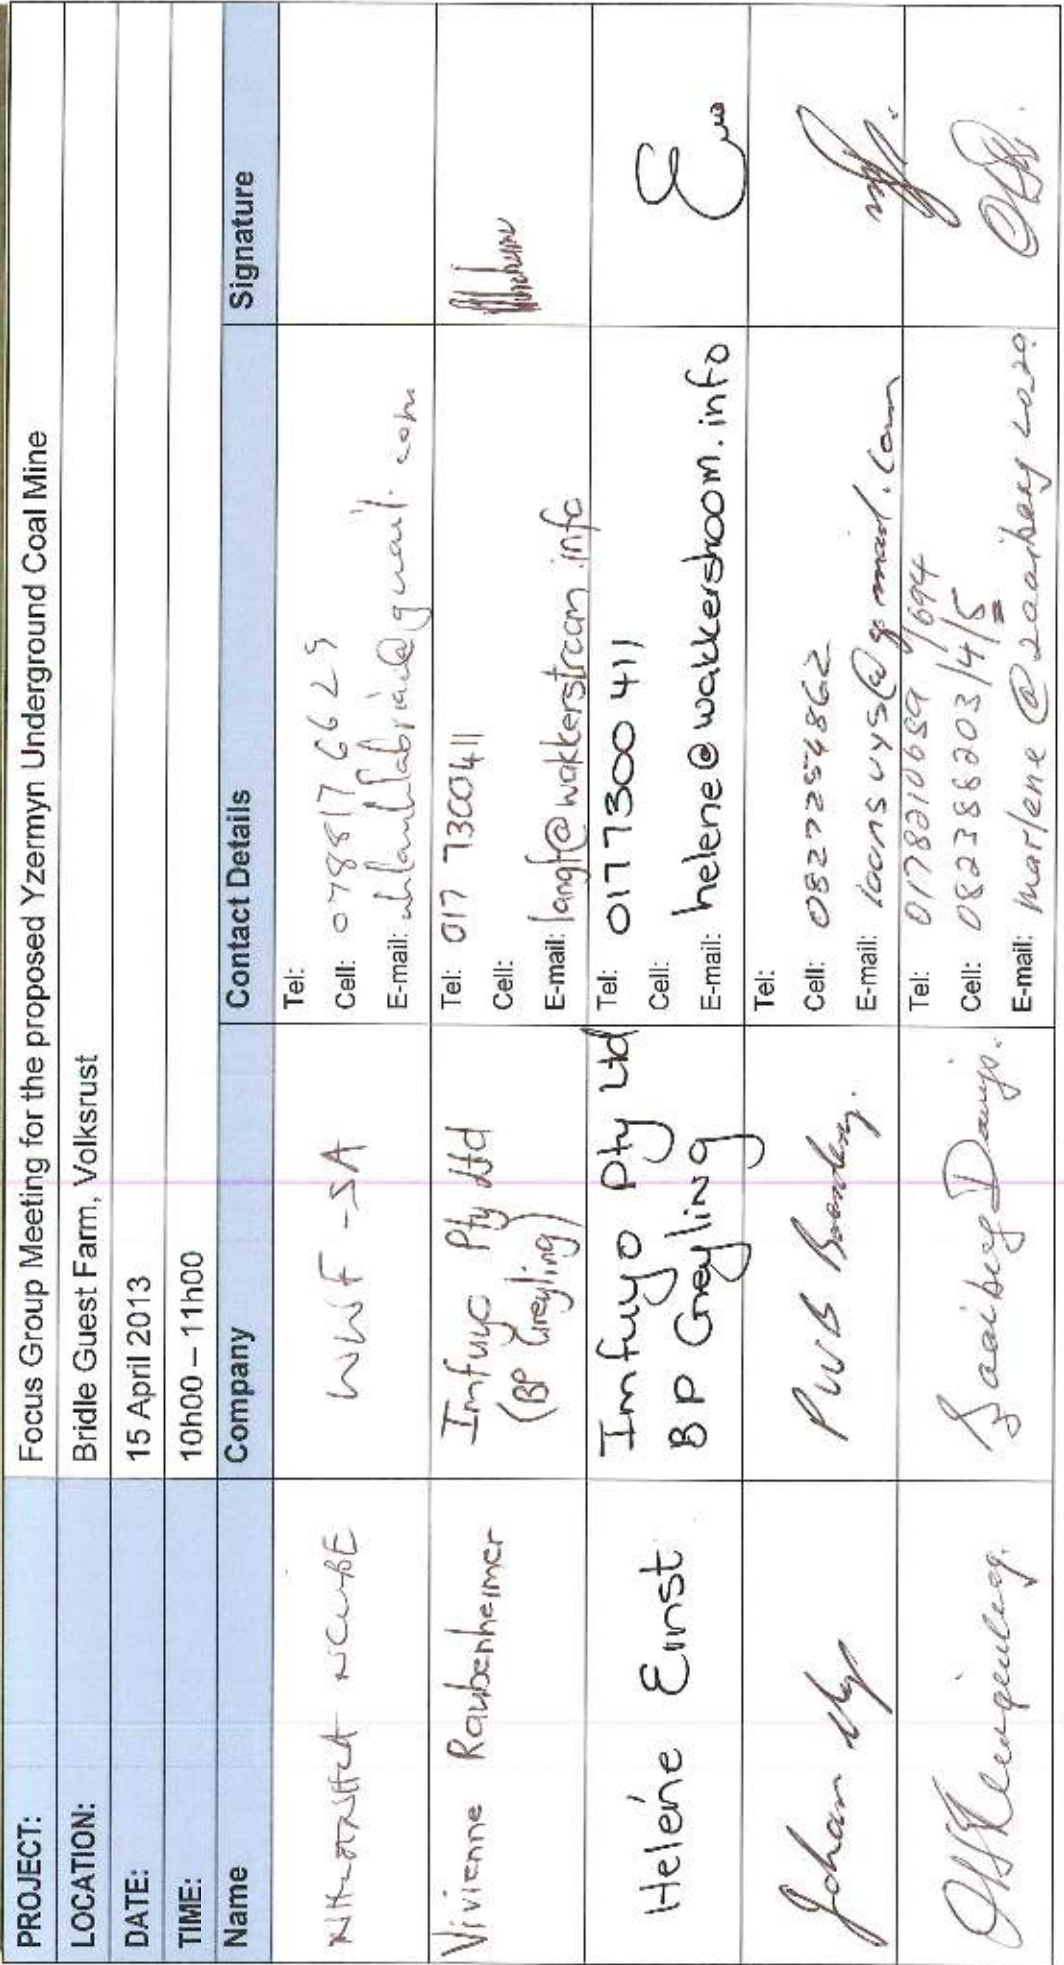 PROJECT: Focus Group Meeting for the proposed Yzermyn Underground Coal Mine
LOCATION: Bridle Guest Farm, Volksrust
DATE: 15 April 2013
TIME: 10h00 – 11h00
Name Company Contact Details Signature
NCUBE WWF-SA Tel:
Cell: 0788176629
E-mail: @gmail.com
Vivienne Raubenheimer Imfuyo Pty Ltd Tel: 017 7300411
(BP Greyling) Cell:
E-mail: langf@wakkerstroom.info
Heléne Ernst Imfuyo Pty Ltd Tel: 017 7300 411
BP Greyling Cell:
E-mail: helene@wakkerstroom.info
Johan Uys PWB Boerdery. Tel:
Cell: 0827254862
E-mail: loonsuys@gmail.com
Tel: 0178210659/694
Cell: 0823888203/4/5
E-mail: marlene@zaaiberg.co.za